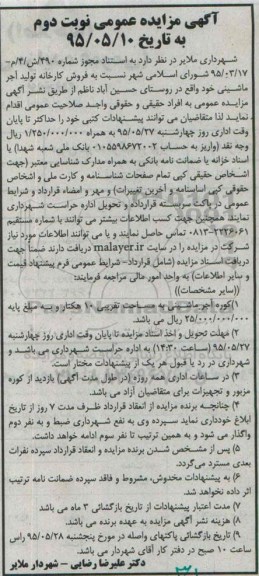 آگهی مزایده عمومی نوبت دوم
به تاریخ ۹۵/۰۵/۱۰
شهرداری ملایر در نظر دارد به استناد مجوز شماره ۳۹۰/ش/۴/م-
۹۵/۰۳/۱۷ شورای اسلامی شهر نسبت به فروش کارخانه تولید آجر
ماشینی خود واقع در روستای حسین آباد ناظم از طریق نشر آگهی
مزایده عمومی به افراد حقیقی و حقوقی واجد صلاحیت عمومی اقدام
نماید لذا متقاضیان می توانند پیشنهادات کتبی خود را حداکثر تا پایان
وقت اداری روز چهارشنبه ۹۵/۰۵/۲۷ به همراه ۱/۲۵۰/۰۰۰/۰۰۰ ریال
وجه نقد (واریز به حساب ۰۱۰۵۵۹۸۶۷۲۰۰۲ بانک ملی شعبه شهدا) یا
اسناد خزانه یا ضمانت نامه بانکی به همراه مدارک شناسایی معتبر (جهت
اشخاص حقیقی کپی تمام صفحات شناسنامه و کارت ملی و اشخاص
حقوقی کپی اساسنامه و آخرین تغییرات) و مهر و امضاء قرارداد و شرایط
عمومی در پاکت دربسته قرارداده و تحویل اداره حراست شهرداری
نمایند همچنین جهت کسب اطلاعات بیشتر می توانند با شماره مستقیم
۰۸۱۳-۲۲۲۶۰۶۱ تماس حاصل نمایند و یا می توانند اطلاعات مورد نیاز
شرکت در مزایده را در سایت malayer.ir دریافت دارند ضمناً جهت
دریافت اسناد مزایده (شامل قرارداد- شرایط عمومی فرم پیشنهاد قیمت
و سایر اطلاعات) به واحد امور مالی مراجعه فرمایند:
((سایر مشخصات))
۱)کوره آجر ماشینی به مساحت تقریبی ۱۰ هکتار و به مبلغ پایه
۲۵/۰۰۰/۰۰۰/۰۰۰ ریال می باشد.
۲) مهلت تحویل و اخذ اسناد مزایده تا پایان وقت اداری روز چهارشنبه
۹۵/۰۵/۲۷ (ساعت ۱۴:۳۰) به اداره حراست شهرداری می باشد و
شهرداری در رد یا قبول هر یک از پیشنهادات مختار است.
۳) در ساعات اداری همه روزه (در طول مدت آگهی) بازدید از کوره
مزبور و تجهیزات برای متقاضیان آزاد می باشد.
۴) چنانچه برنده مزایده از انعقاد قرارداد ظرف مدت ۷ روز از تاریخ
ابلاغ خودداری نماید سپرده وی به نفع شهرداری ضبط و به نفر دوم
واگذار می شود و به همین ترتیب تا نفر سوم ادامه خواهد داشت.
۵) پس از مشخص شدن برنده مزایده و انعقاد قرارداد سپرده نفرات
بعدی مسترد می‌گردد.
۶) به پیشنهادات مخدوش، مشروط و فاقد سپرده ضمانت نامه ترتیب
اثر داده نخواهد شد.
۷) مدت اعتبار پیشنهادات از تاریخ بازگشائی ۳ ماه می باشد
۸) هزینه نشر آگهی مزایده به عهده برنده می باشد.
۹) تاریخ بازگشائی پاکتهای واصله در مورخ پنجشنبه ۹۵/۰۵/۲۸ راس
ساعت ۱۰ صبح در دفتر کار آقای شهردار می باشد.
دکتر علیرضا رضایی – شهردار ملایر